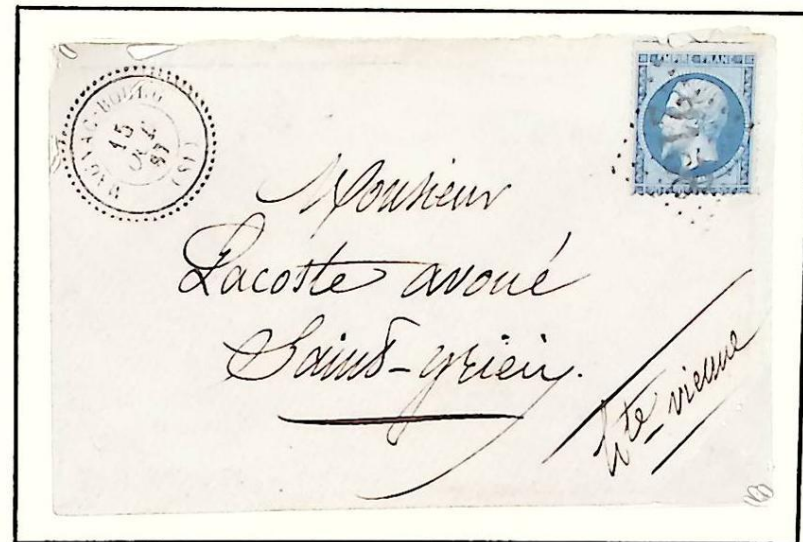 EMPIRE FRANC
(18)
15
Monsieur
Lacoste avoué
Saint-yrieix.
hte-vienne